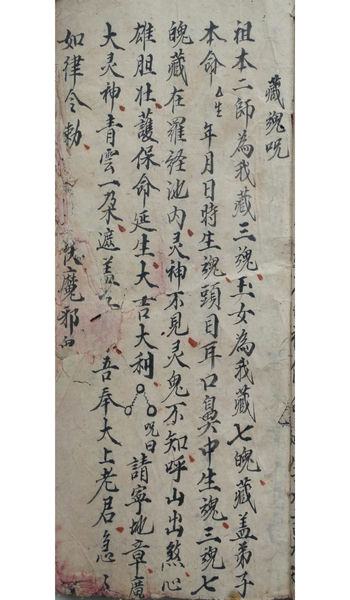 藏魂咒
祖本二師為我藏三魂玉女為我藏七魄藏盖弟子
本命 生 年月日時生魂頭目耳口鼻中生魂三魂七
魄藏在羅经池内灵神不見灵鬼不知呼山出煞心
雄胆壮護保命延生大吉大利 咒曰 請寧地章廣
大灵神青雲一朶遮盖 吾奉大上老君急々
如律令勅 魔邪